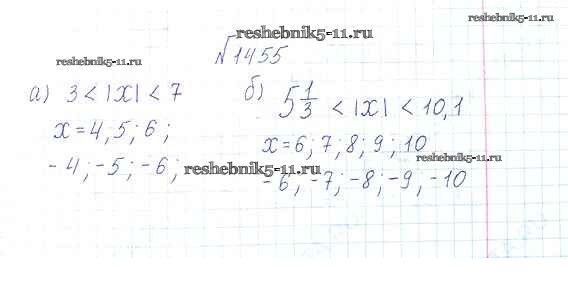 reshebnik5-11.ru
reshebnik5-11.ru
№1455
reshebnik5-11.ru
а) 3 < |x| < 7
x = 4, 5; 6;
-4; -5; -6;
б) 5 1/3 < |x| < 10,1
x = 6; 7; 8; 9; 10
reshebnik5-11.ru
reshebnik5-11.ru
-6; -7; -8; -9; -10